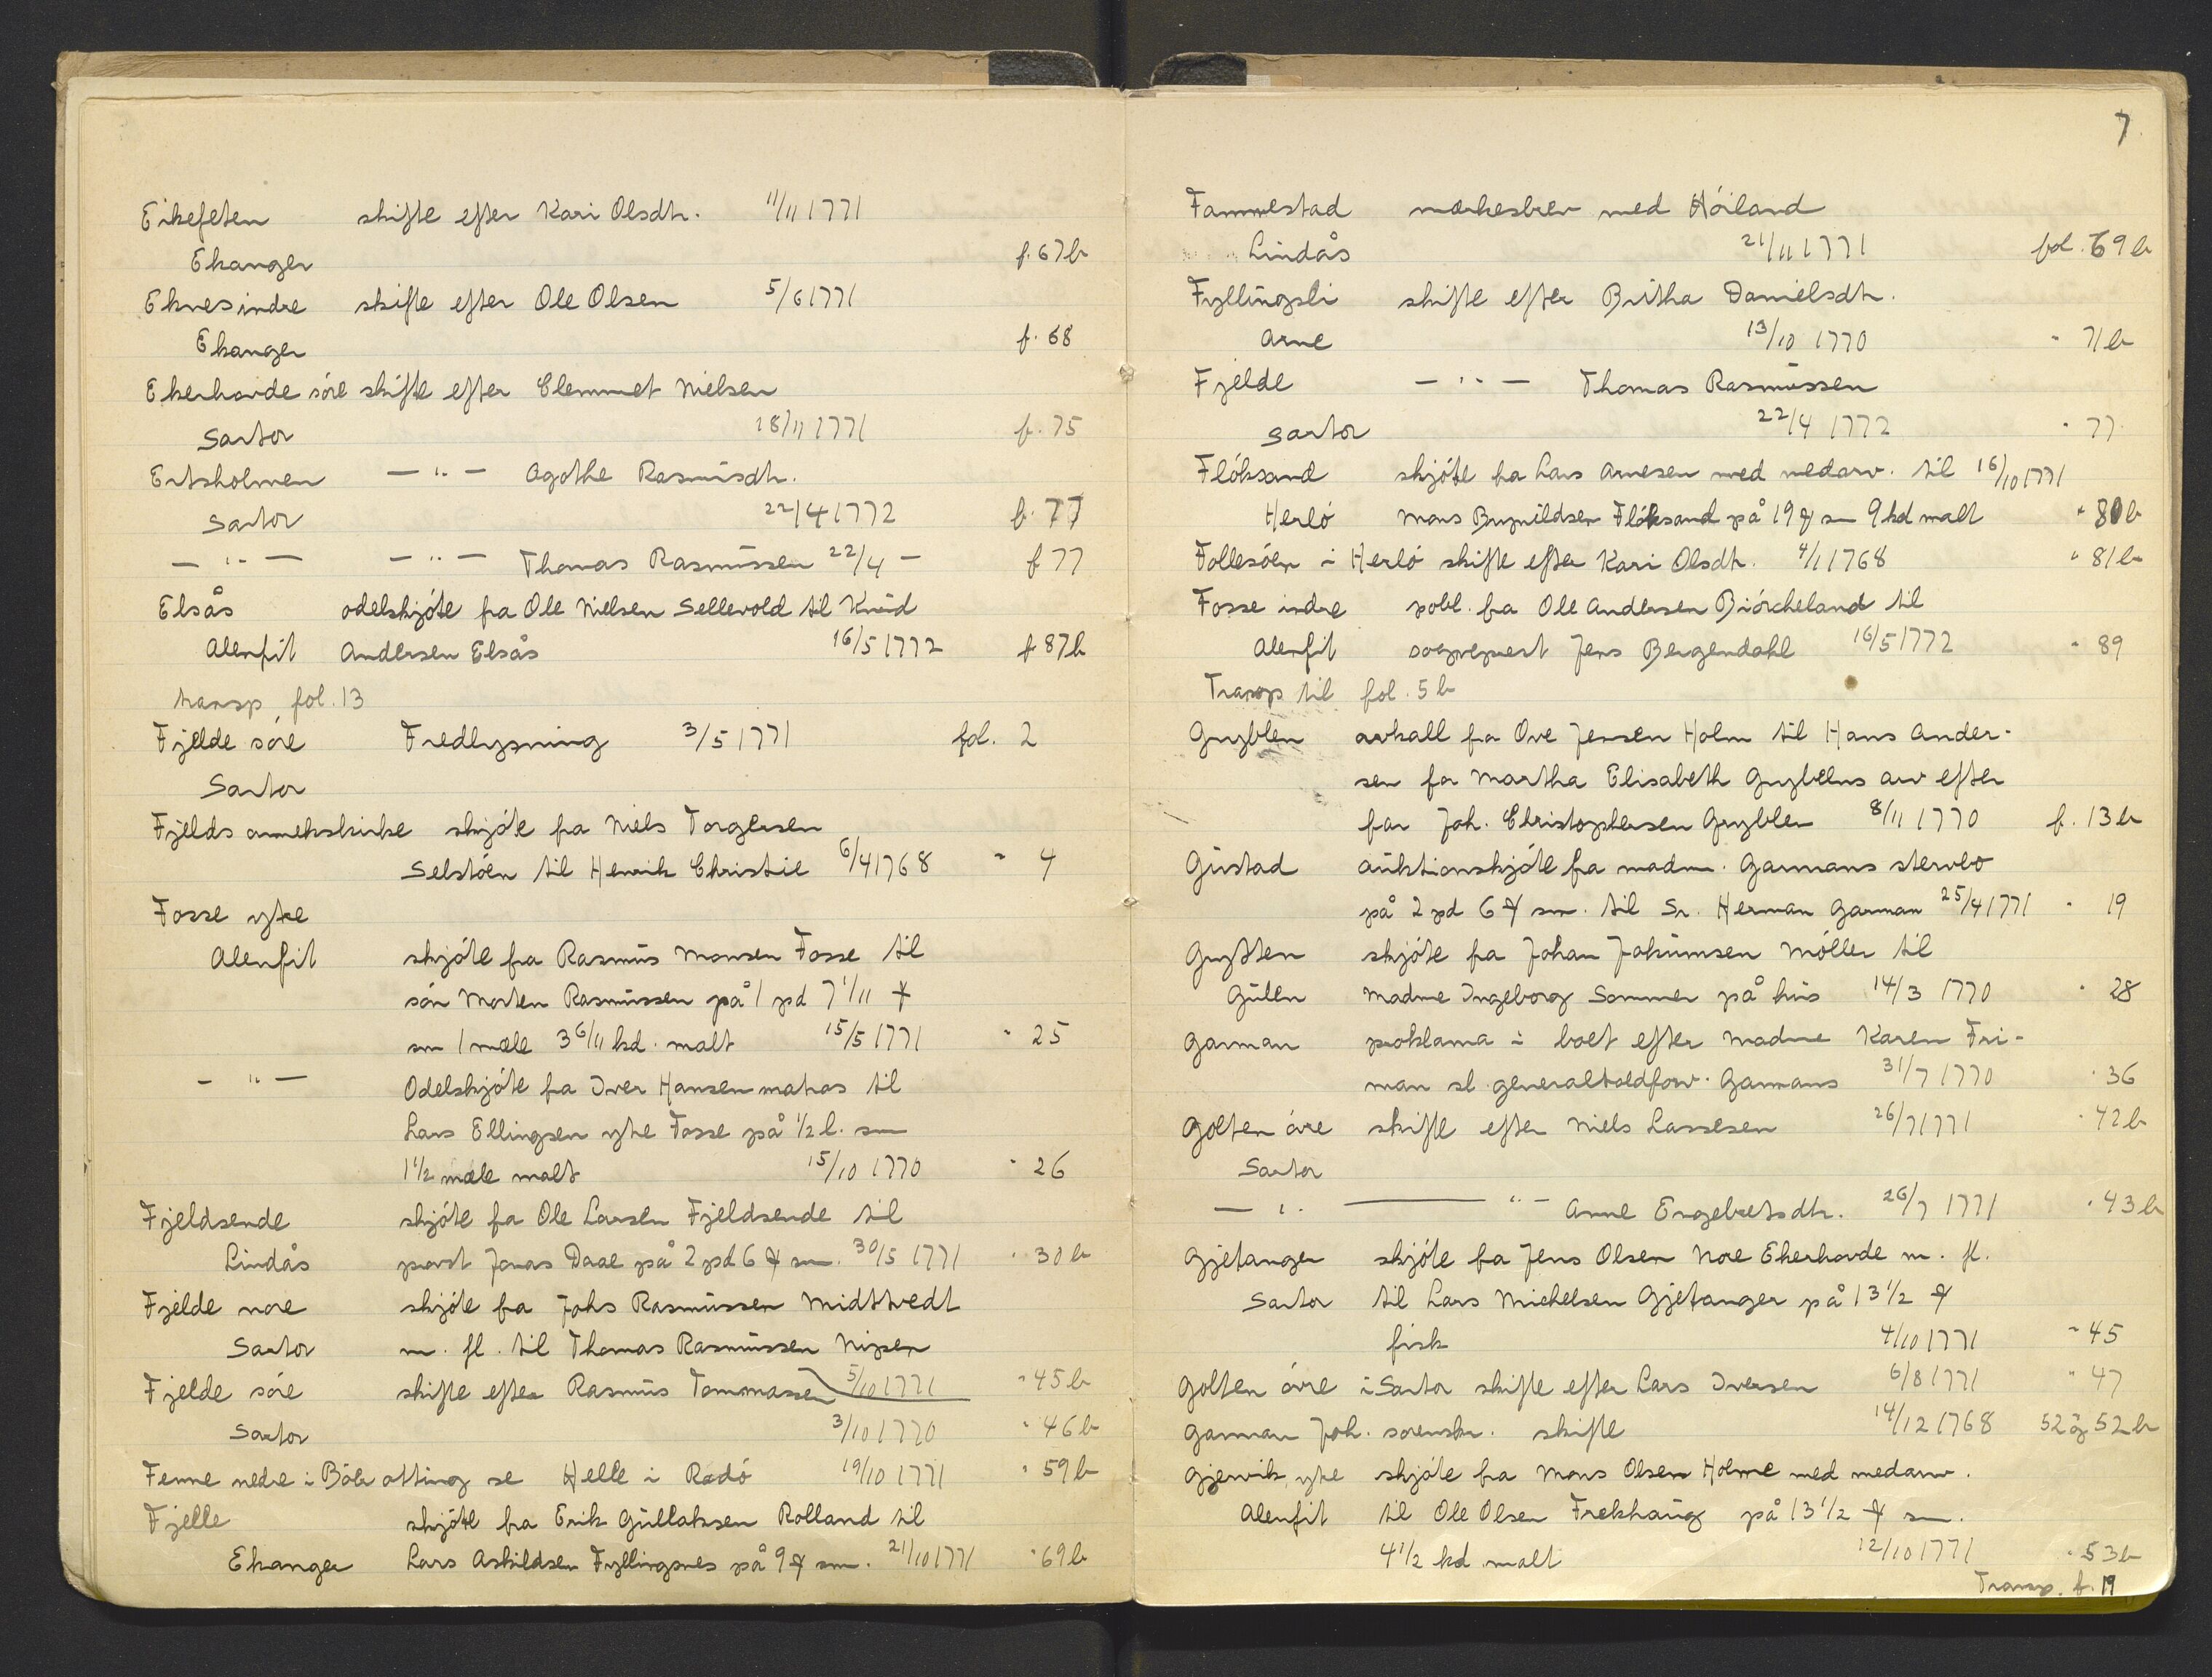 Eikefeten skifte efter Kari Olsdtr. 11/11 1771
Ekanger f. 67b
Eknes indre skifte efter Ole Olsen 5/6 1771
Ekanger f. 68
Ekerhovde söre skifte efter Clemmet Nielsen
Sartor 18/11 1771 f. 75
Ertsholmen — " — Agothe Rasmusdtr.
Sartor 22/4 1772 f. 77
— " — — " — Thomas Rasmussen 22/4 — f 77
Elsås odelskjöte fra Ole Nielsen Sellevold til Knud
Alenfit Andersen Elsås 16/5 1772 f 87b
transp fol. 13
Fjelde söre Fredlysning 3/5 1771 fol. 2
Sartor
Fjelds annekskirke skjöte fra Niels Torgersen
Selstöen til Henrik Christie 6/4 1768 " 4
Fosse ytre
Alenfit skjöte fra Rasmus Monsen Fosse til
sön Morten Rasmussen på 1 pd 7 1/11 ℔
sm 1 mæle 3 6/11 kd. malt 15/5 1771 " 25
— " — Odelskjöte fra Iver Hansen Matras til
Lars Ellingsen ytre Fosse på 1/2 l. sm
1 1/2 mæle malt 15/10 1770 " 26
Fjeldsende skjöte fra Ole Larsen Fjeldsende til
Lindås provst Jonas Daae på 2 pd 6 ℔ sm. 30/5 1771 " 30b
Fjelde nore skjöte fra Johs Rasmussen Midttvedt
Sartor m. fl. til Thomas Rasmussen Nipen
Fjelde söre skifte efter Rasmus Tommassen 5/10 1771 " 45b
Sartor 3/10 1770 " 46b
Fenne nedre i Böe otting se Helle i Radö 19/10 1771 " 59b
Fjelle skjöte fra Erik Gullaksen Rolland til
Ekanger Lars Askildsen Fyllingsnes på 9 ℔ sm. 21/10 1771 " 69b
7
Fammestad merkesbrev med Höiland
Lindås 21/11 1771 fol. 69b
Fyllingsli skifte efter Britha Danielsdtr.
Arne 13/10 1770 " 71b
Fjelde — " — Thomas Rasmussen
Sartor 22/4 1772 " 77
Flöksand skjöte fra Lars Arnesen med medarv. til 16/10 1771
Herlö Mons Brynildsen Flöksand på 19 ℔ sm 9 kd malt " 80b
Follesöen i Herlö skifte efter Kari Olsdtr. 4/1 1768 " 81b
Fosse indre pobl. fra Ole Andersen Biörcheland til
Alenfit sogneprest Jens Bergendahl 16/5 1772 " 89
Transp til fol. 5b
Gryblen avkall fra Ove Jensen Holm til Hans Ander-
sen for Martha Elisabeth Gryblens arv efter
far Joh. Christophersen Gryblen 8/11 1770 f. 13b
Gustad auktionskjöte fra madm. Garmans stervbo
på 2 pd 6 ℔ sm. til Sr. Herman Garman 25/4 1771 " 19
Grytten skjöte fra Johan Jokumsen Möller til
Gulen Madme Ingeborg Sommer på hus 14/3 1770 " 28
Garman proklama i boet efter Madme Karen Fri-
man sl. generaltoldforv. Garmans 31/7 1770 " 36
Golten övre skifte efter Niels Lassesen 26/7 1771 " 42b
Sartor
— " — " — Anne Engebretsdtr. 26/7 1771 " 43b
Gjetanger skjöte fra Jens Olsen Nore Ekerhovde m. fl.
Sartor til Lars Michelsen Gjetanger på 13 1/2 ℔
fisk 4/10 1771 " 45
Golten övre i Sartor skifte efter Lars Iversen 6/8 1771 " 47
Garman Joh. sorenskr. skifte 14/12 1768 52 og 52b
Gjervik ytre skjöte fra Mons Olsen Holme med medarv.
Alenfit til Ole Olsen Frekhaug på 13 1/2 ℔ sm.
4 1/2 kd malt 12/10 1771 " 53b
Transp. f. 19